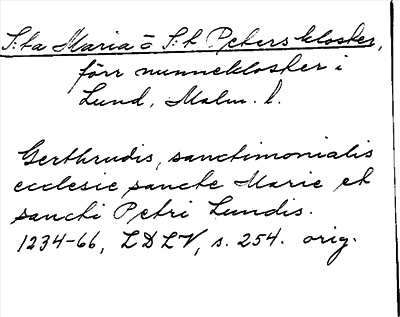 S:ta Maria o S:t Peters kloster,
förr nunnekloster i
Lund, Malm. l.
Gerthrudis, sanctimonialis
ecclesie sancte Marie et
sancti Petri Lundis.
1234-66, LDLV, s. 254. orig.